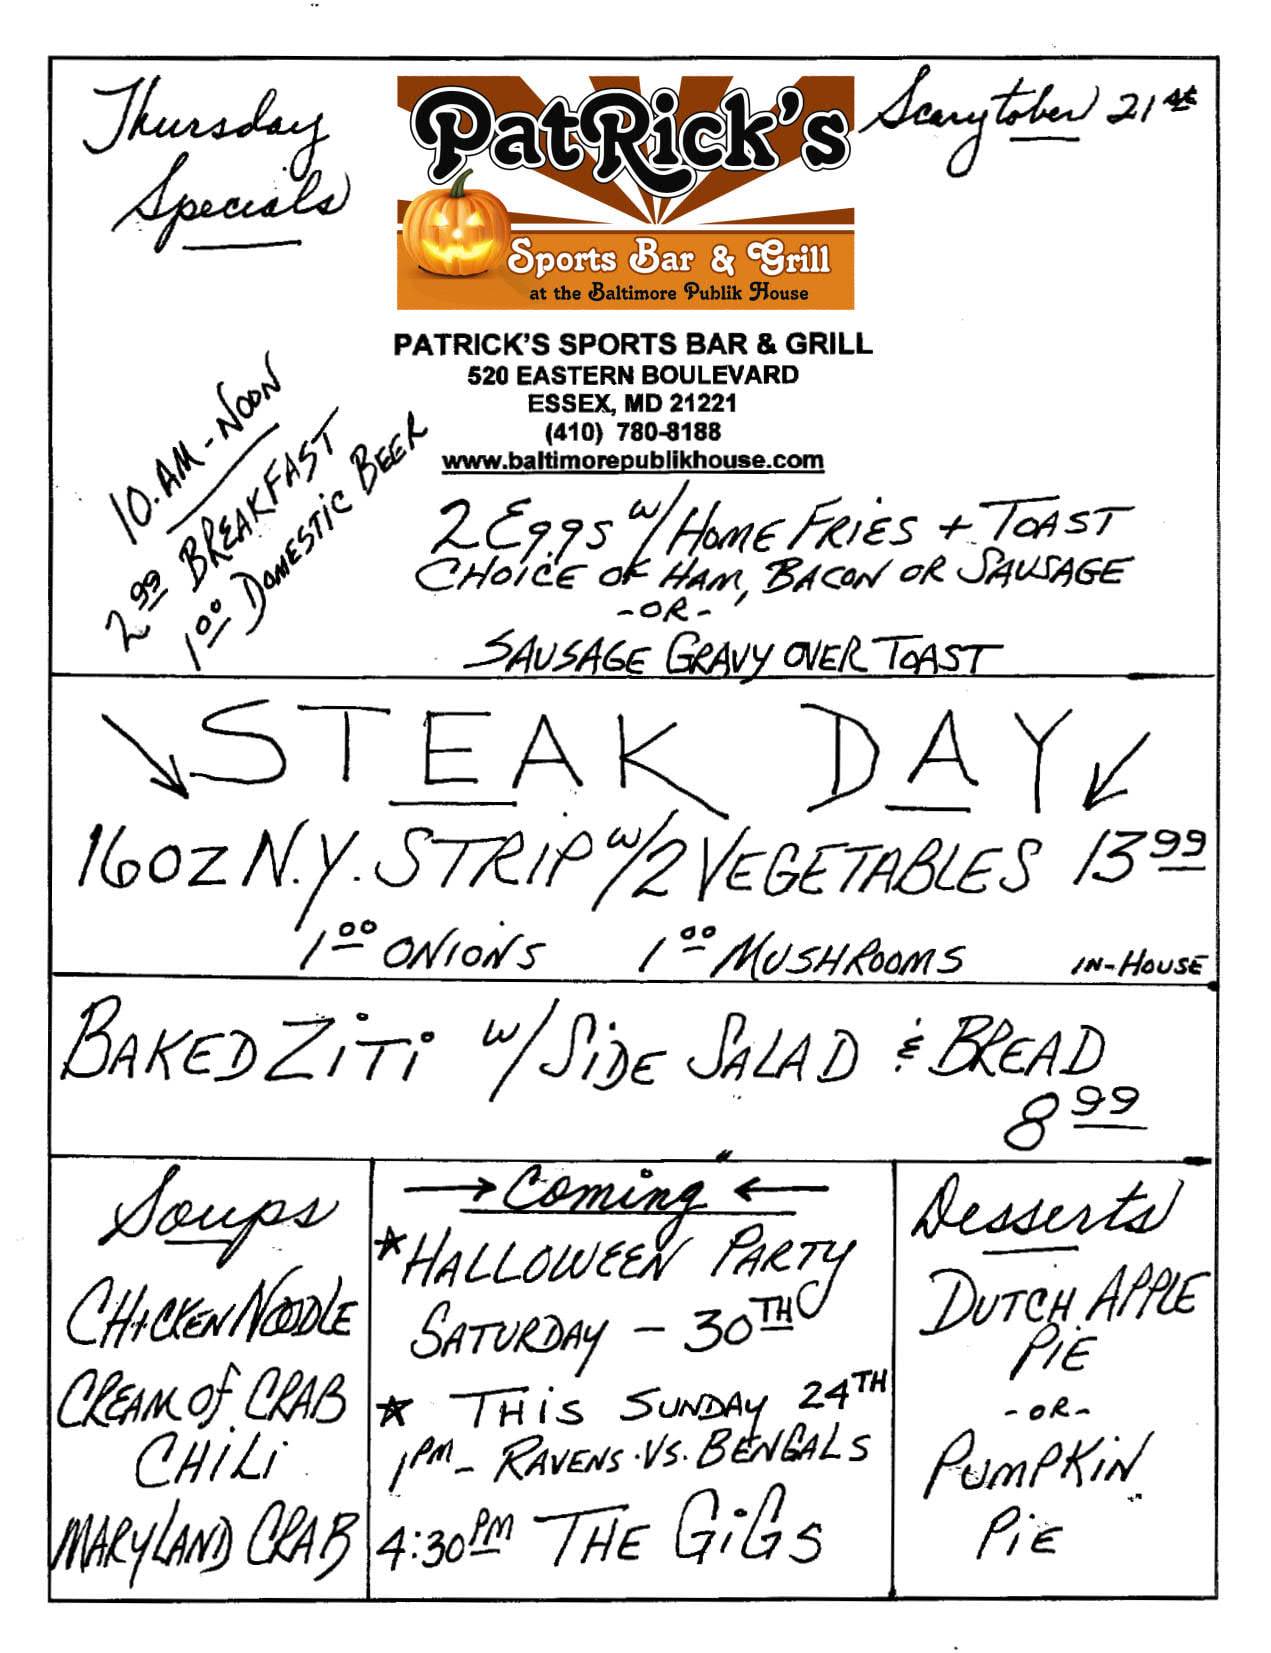 Thursday
Specials
PatRick's
Sports Bar & Grill
at the Baltimore Publik House
Scarytober 21st
PATRICK'S SPORTS BAR & GRILL
520 EASTERN BOULEVARD
ESSEX, MD 21221
(410) 780-8188
www.baltimorepublikhouse.com
10 AM - NOON
2.99 BREAKFAST
1.00 DOMESTIC BEER
2 EGGS w/ HOME FRIES + TOAST
CHOICE OF HAM, BACON OR SAUSAGE
- OR -
SAUSAGE GRAVY OVER TOAST
STEAK DAY
16OZ N.Y. STRIP w/ 2 VEGETABLES 13 99
1 00 ONIONS 1 00 MUSHROOMS IN-HOUSE
BAKED ZITI w/ SIDE SALAD & BREAD
8 99
Soups
CHICKEN NOODLE
CREAM OF CRAB
CHILI
MARYLAND CRAB
→ Coming ←
* HALLOWEEN PARTY
SATURDAY - 30TH
* THIS SUNDAY 24TH
1PM - RAVENS VS. BENGALS
4:30PM THE GIGS
Desserts
DUTCH APPLE
PIE
- OR -
PUMPKIN
PIE